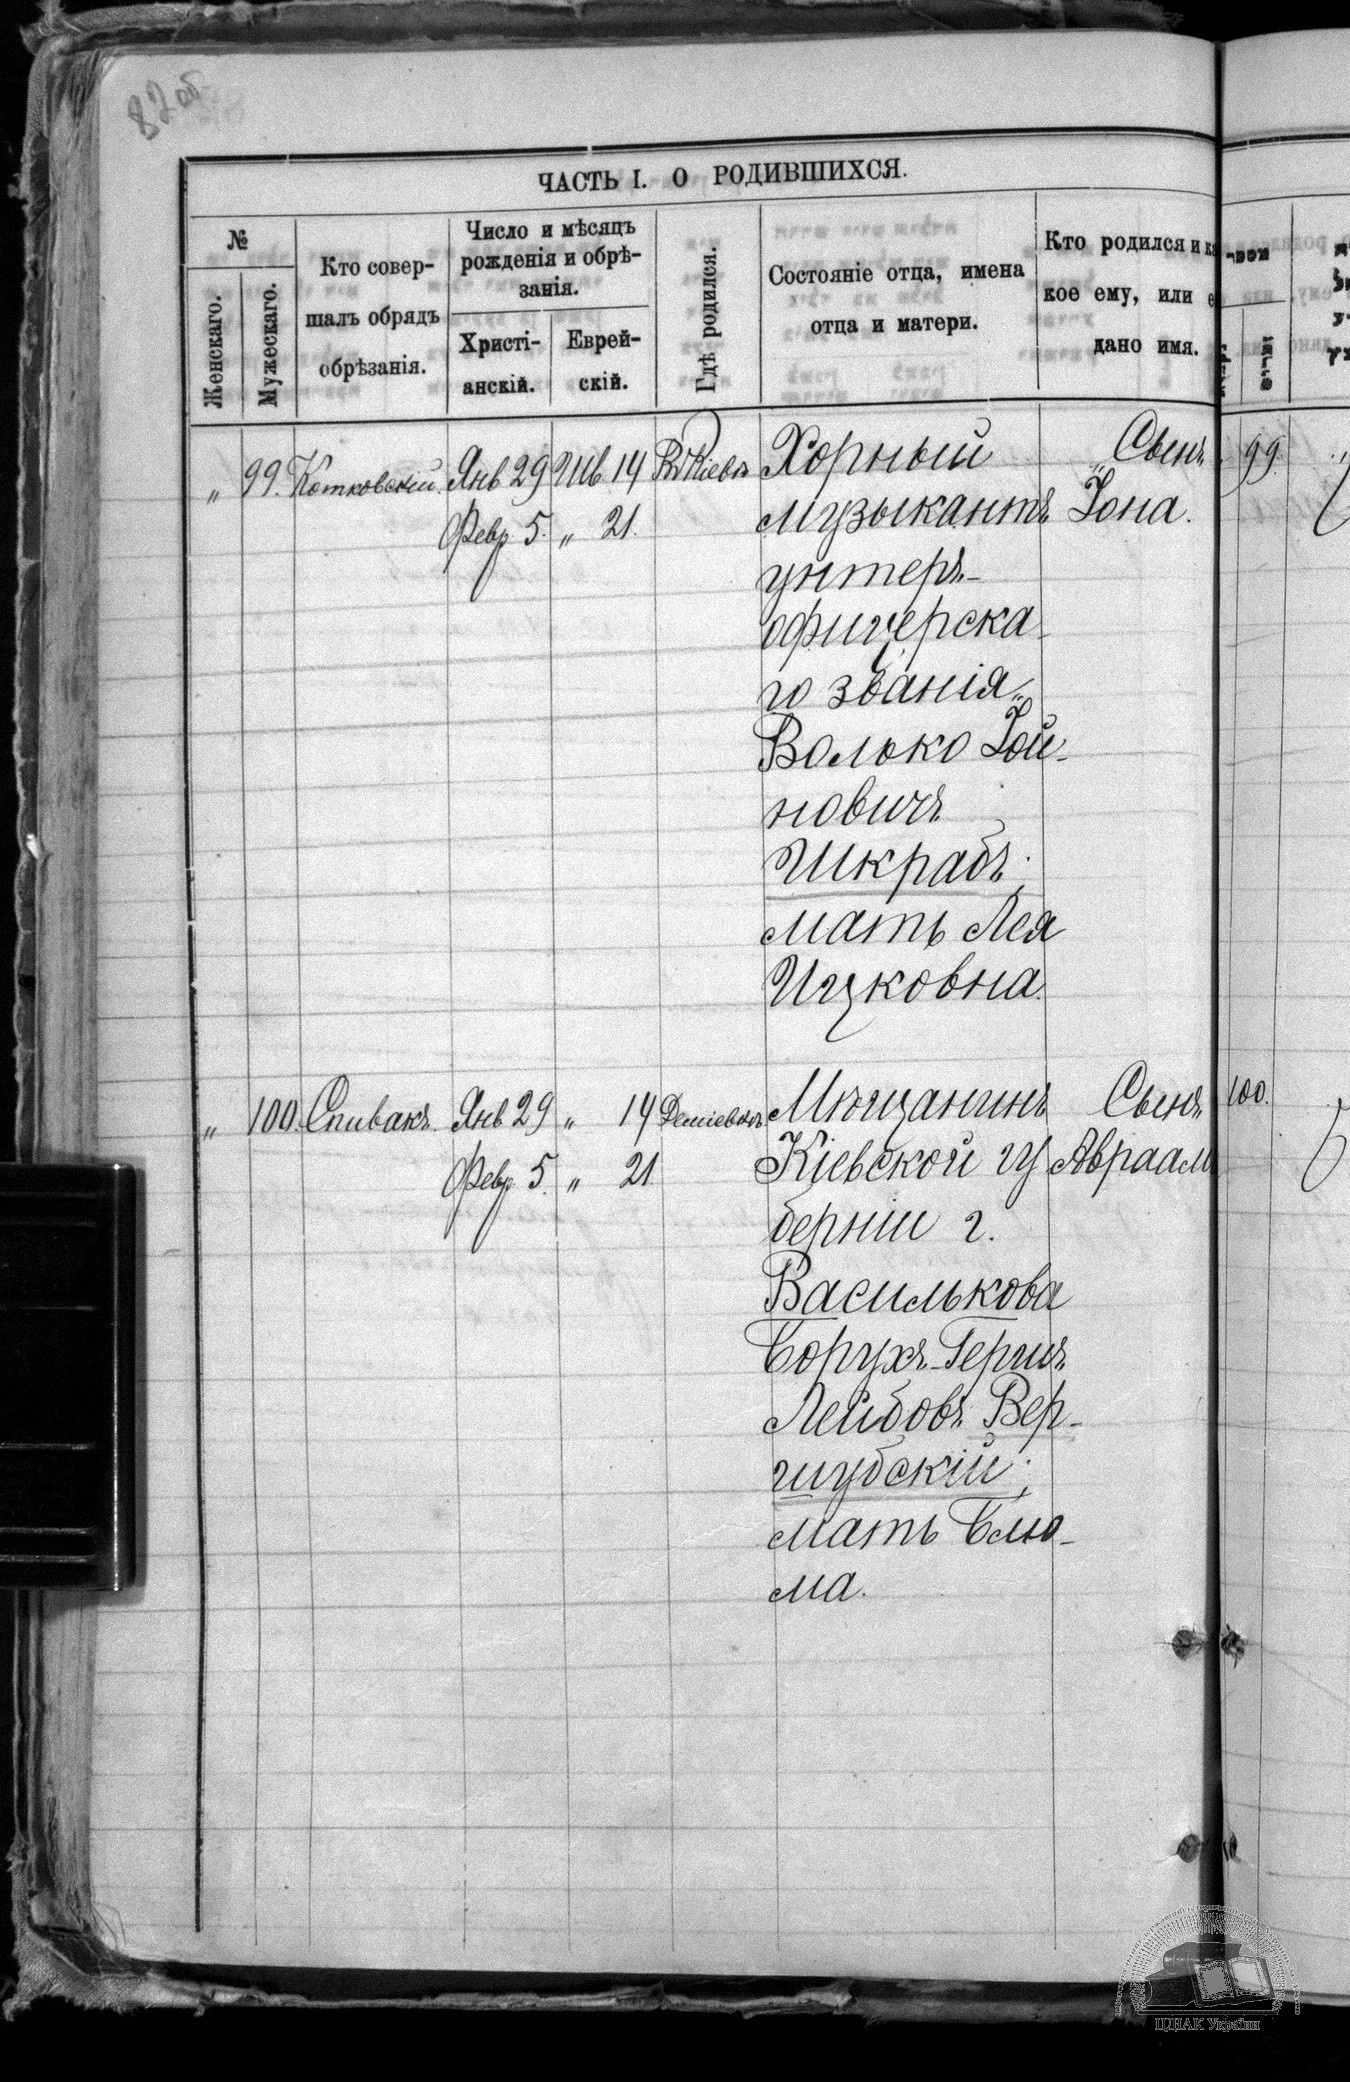 82 об
ЧАСТЬ I. О РОДИВШИХСЯ.
№
Женскаго.
Мужескаго.
Кто совер-
шалъ обрядъ
обрѣзанія.
Число и мѣсяцъ
рожденія и обрѣ-
занія.
Христі-
анскій.
Еврей-
скій.
Гдѣ родился.
Состояніе отца, имена
отца и матери.
Кто родился и ка
кое ему, или е
дано имя.
„ 99. Котковскій. Янв 29 Шв. 14 Въ Кіевѣ Хорный Сынъ 99.
Февр. 5. „ 21. музыкантъ Іона.
унтеръ-
офицерска-
го званія
Волько Іой-
новичъ
Шкрабъ;
мать Лея
Ицковна.
„ 100. Спивакъ. Янв 29 „ 14 Деміевкѣ. Мѣщанинъ Сынъ 100.
Февр. 5. „ 21. Кіевской гу Авраам
берніи г.
Василькова
Борухъ-Гершъ
Лейбовъ Вер-
шубскій;
мать Блю-
ма.
ЦДІАК України